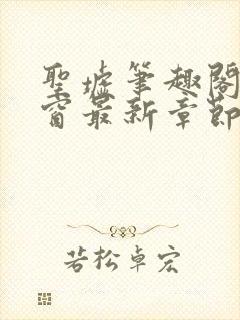 聖墟筆趣閣
窗最新章節
若松卓宏